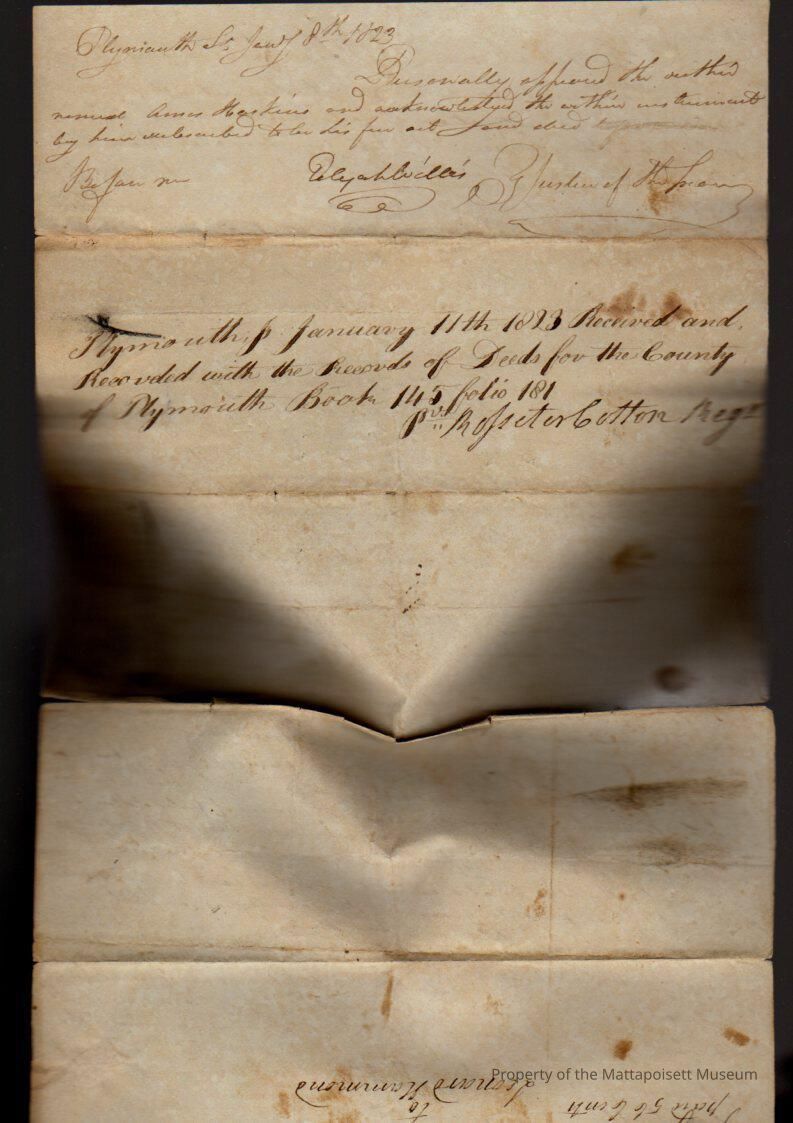 Plymouth Ss Jany 8th 1823
Personally appeared the within
named Amos Haskins and acknowledged the within instrument
by him subscribed to be his free act and deed
Before me Elijah Willis Justice of the peace
Plymouth, ss January 11th 1823 Received and
Recorded with the Records of Deeds for the County
of Plymouth Book 145 folio 181
pr Rosseter Cotton Regr
Property of the Mattapoisett Museum
Leonard Hammond
to
paid 56 Cents